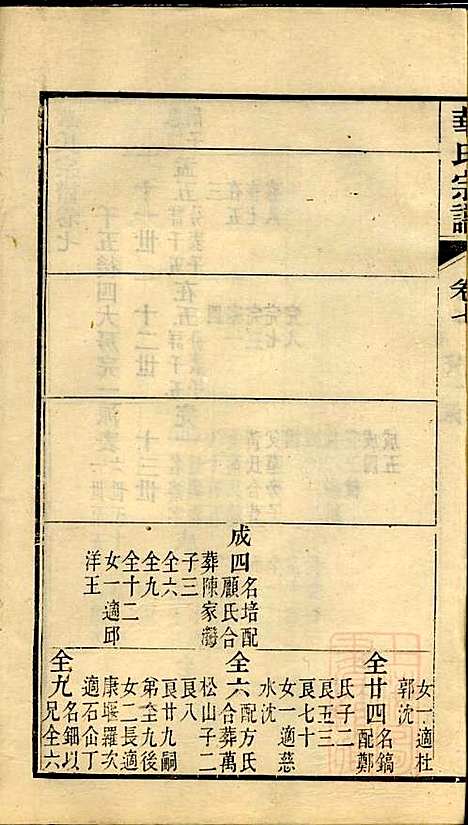 華氏宗譜
卷七
成四名培配
顧氏合
葬陳家灣
子三
全六
全九
全十二
女一適邱
洋王
女一適杜
郭沈
全廿四名鎬
配鄭
氏子二
良五三
良七十
女一適慈
水沈
全六配方氏
合葬萬
松山子二
良八
良廿九嗣
弟全九後
女二長適
康堰羅次
適石仚丁
全九名鈿以
兄全六